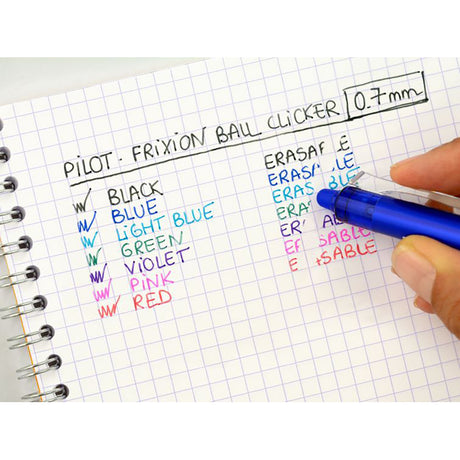 PILOT - FRIXION BALL CLICKER 0.7mm
BLACK
BLUE
LIGHT BLUE
GREEN
VIOLET
PINK
RED
ERASABLE
ERASABLE
ERAS BLE
ERA
ER
E SABLE
E SABLE